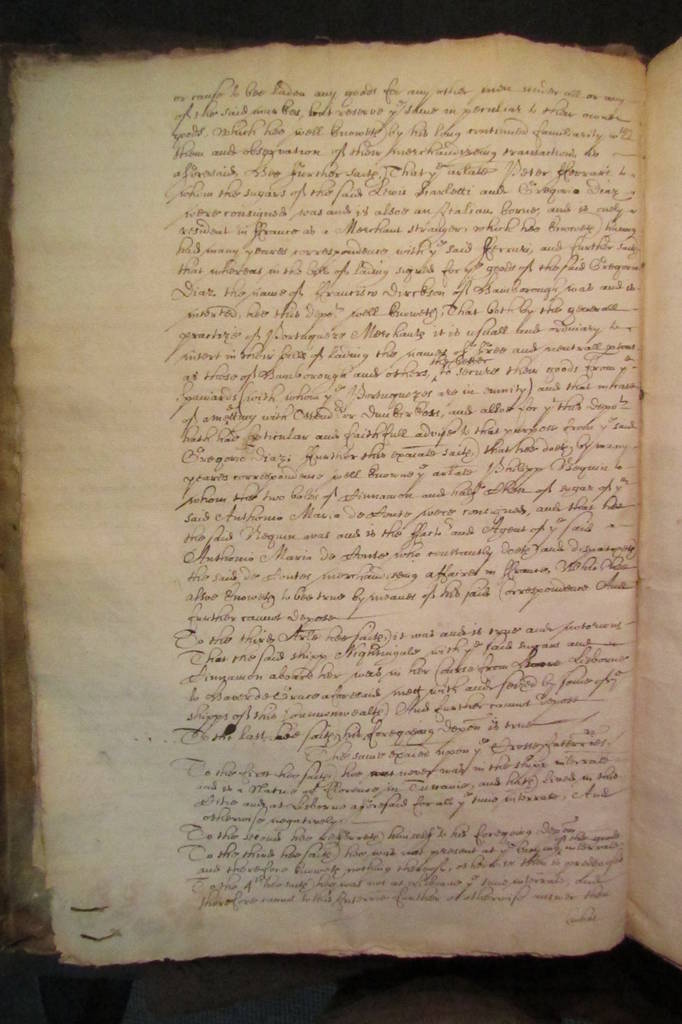 or cause to bee laden any goods for any other men under all or any
of the said markes, but reserve ye same in peculiar to their owne
goods. Which hee well knoweth by his long continued familiarity with
them and observation of their merchandizeing transactions as
aforesaid, Hee further saith, That ye arlate Peter Ferrari to
whom the sugars of the said Lewis and Gregorio Diaz
were consigned was and is alsoe an Italian borne, and is only
resident in ffrance as a Merchant stranger, which hee knoweth having
had many yeares correspondence with ye said Ferrari, and further saith
that whereas in the bill of lading signed for ye goods of the said Gregorio
Diaz the name of ffrancisco Dirckson of Hamborough was and is
inserted, hee this depot well knoweth, That both by the generall
practize of Portugueze Merchants it is usuall and ordinary to
insert in their bills of lading the names of free and neutrall persons
as those of Hamborough and others, the better to secure their goods from ye
Spaniards (with whom ye Portugueses are in enmity) and that in case
of meeting with Ostend or Dunkirkers, and alsoe for yt this depot
hath had perticular and faithfull advise to that purpose from ye said
Gregorio Diaz. Further this examate saith, that hee doeth by many
yeares correspondence well know ye arlate Philipp Roquin to
whom the two bales of Sinnamon and halfe Chest of sugar of ye
said Anthonio Maria de Ponte were consigned, and that hee
the said Roquin was and is the ffactor and Agent of ye said
Anthonio Maria de Ponte who constantly doeth and dispatcheth
the said de Pontes merchandizeing affaires in ffrance, Which hee
alsoe knoweth to bee true by meanes of his said Correspondence And
further cannot depose
To the third Arle hee saith, it was and is true and notorious
That the said shipp Nightingale with ye said sugars and
Sinnamon aboard her, was in her Course from Lisborne
to Haver de Grace aforesaid mett with and seized by some of ye
shipps of this Commonwealth, And further cannot depose
To the last hee saith, his foregoing deposn is true
The same examed upon ye Crosse Interries.
To the first hee saith, hee never was in the shipp interrate
and is a Native of fflorence in Tuscanie, and hath lived in this
Citie and at Lisborne aforesaid for all ye time interrate, And
otherwise negatively.
To the second hee referreth himselfe to his foregoing deposn
To the third hee saith, hee was not present at ye buying of the goods interrate
and therefore knoweth nothing thereof, otherwise then is predeposed
To the 4th hee saith, hee was not at Lisborne ye time interrate, And
therefore cannot to this Interrie further or otherwise answer then